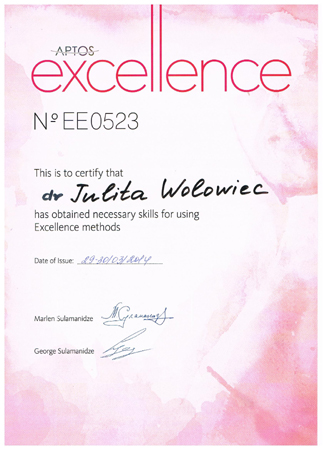 APTOS
excellence
Nº EE0523
This is to certify that
dr Julita Wołowiec
has obtained necessary skills for using
Excellence methods
Date of Issue: 29-30/03/2014
Marlen Sulamanidze
George Sulamanidze